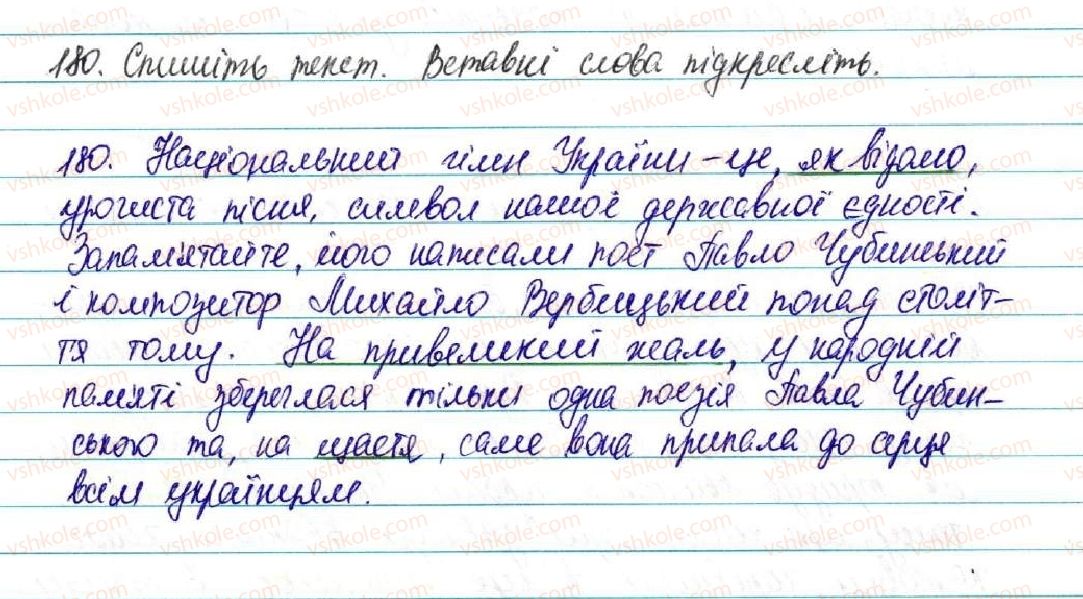 180. Спишіть текст. Вставні слова підкресліть.
180. Національний гімн України – це, як відомо,
урочиста пісня, символ нашої державної єдності.
Запам'ятайте, його написали поет Павло Чубинський
і композитор Михайло Вербицький понад століт-
тя тому. На превеликий жаль, у народній
пам'яті збереглася тільки одна поезія Павла Чубин-
ського та, на щастя, саме вона припала до серця
всім українцям.